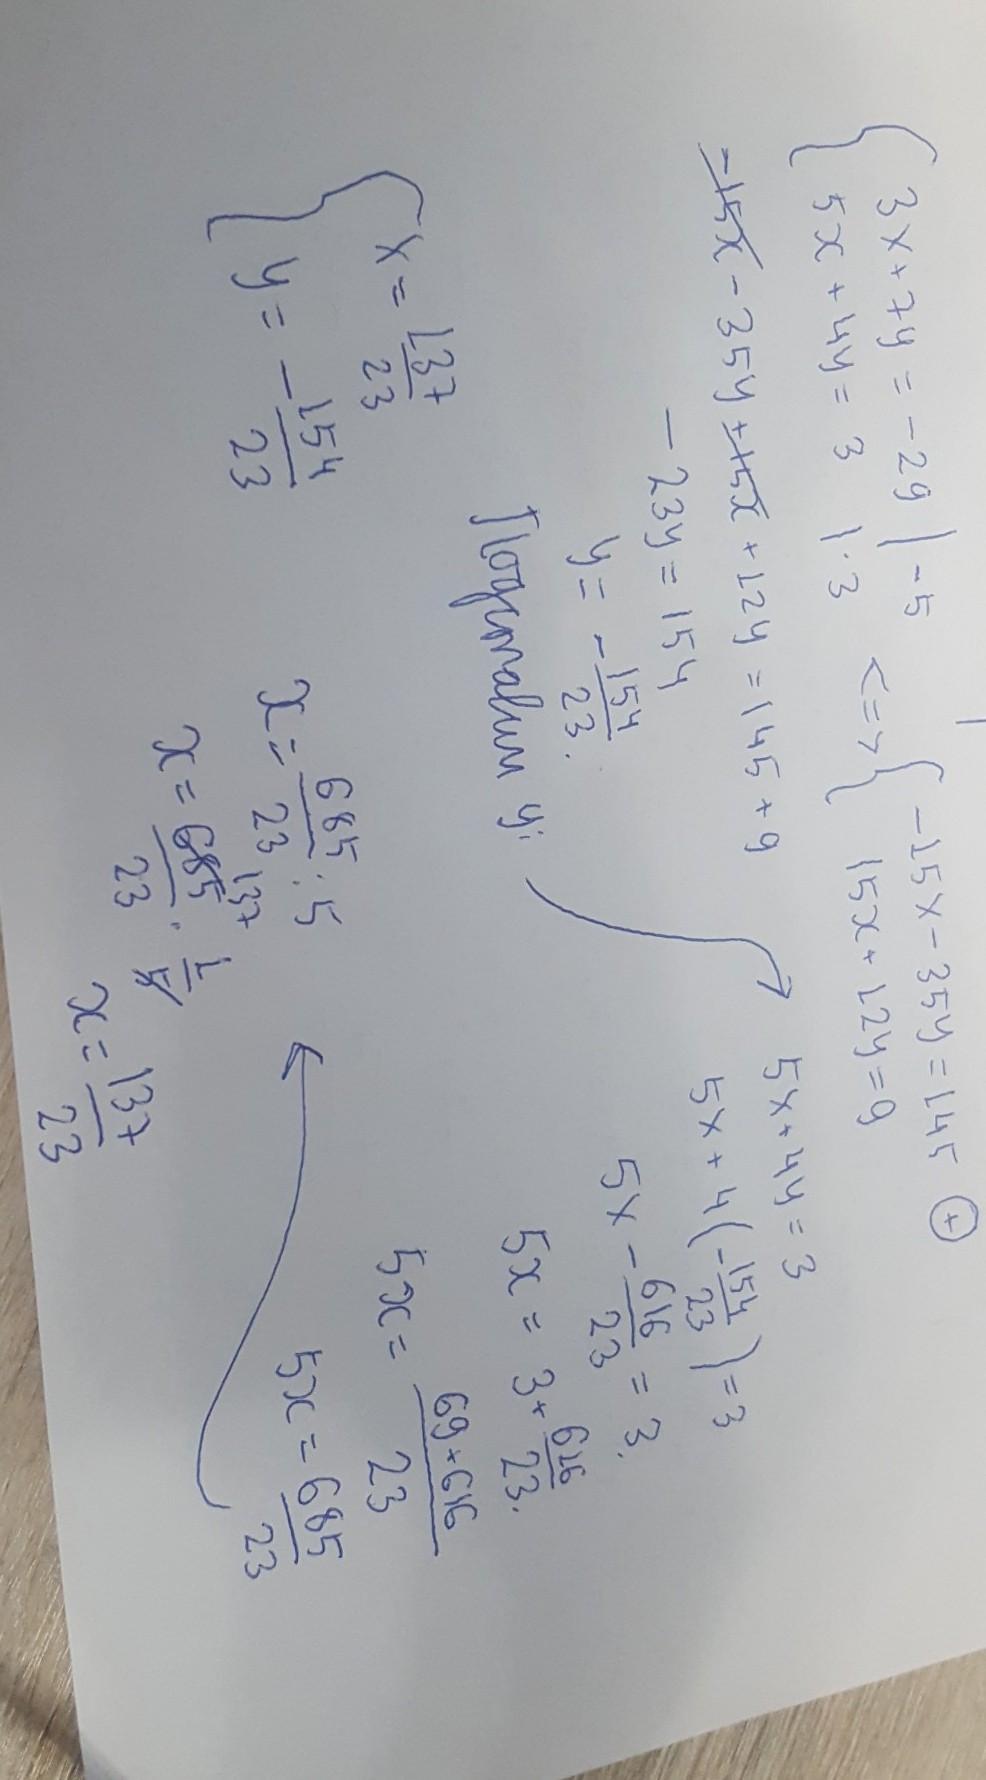 { 3x + 7y = -29 | -5
{ 5x + 4y = 3 | · 3
<=>
{ -15x - 35y = 145
{ 15x + 12y = 9
(+)
-15x - 35y + 15x + 12y = 145 + 9
- 23y = 154
y = - 154/23.
Подставим y:
5x + 4y = 3
5x + 4(-154/23) = 3
5x - 616/23 = 3.
5x = 3 + 616/23.
5x = 69+616/23
5x = 685/23
x = 685/23 : 5
137
x = 685/23 · 1/5
x = 137/23
{ x = 137/23
{ y = - 154/23